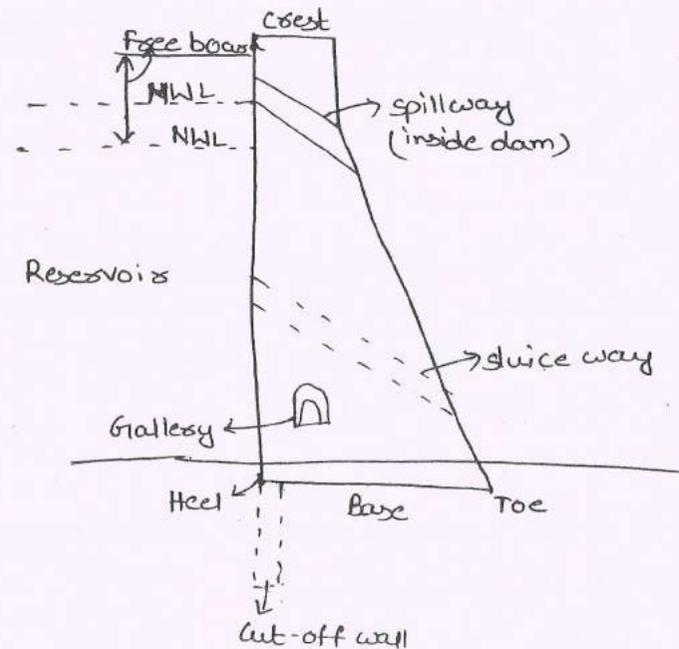 Crest
Free board
MWL
NWL
spillway
(inside dam)
Reservoir
sluice way
Gallery
Heel
Base
Toe
Cut-off wall